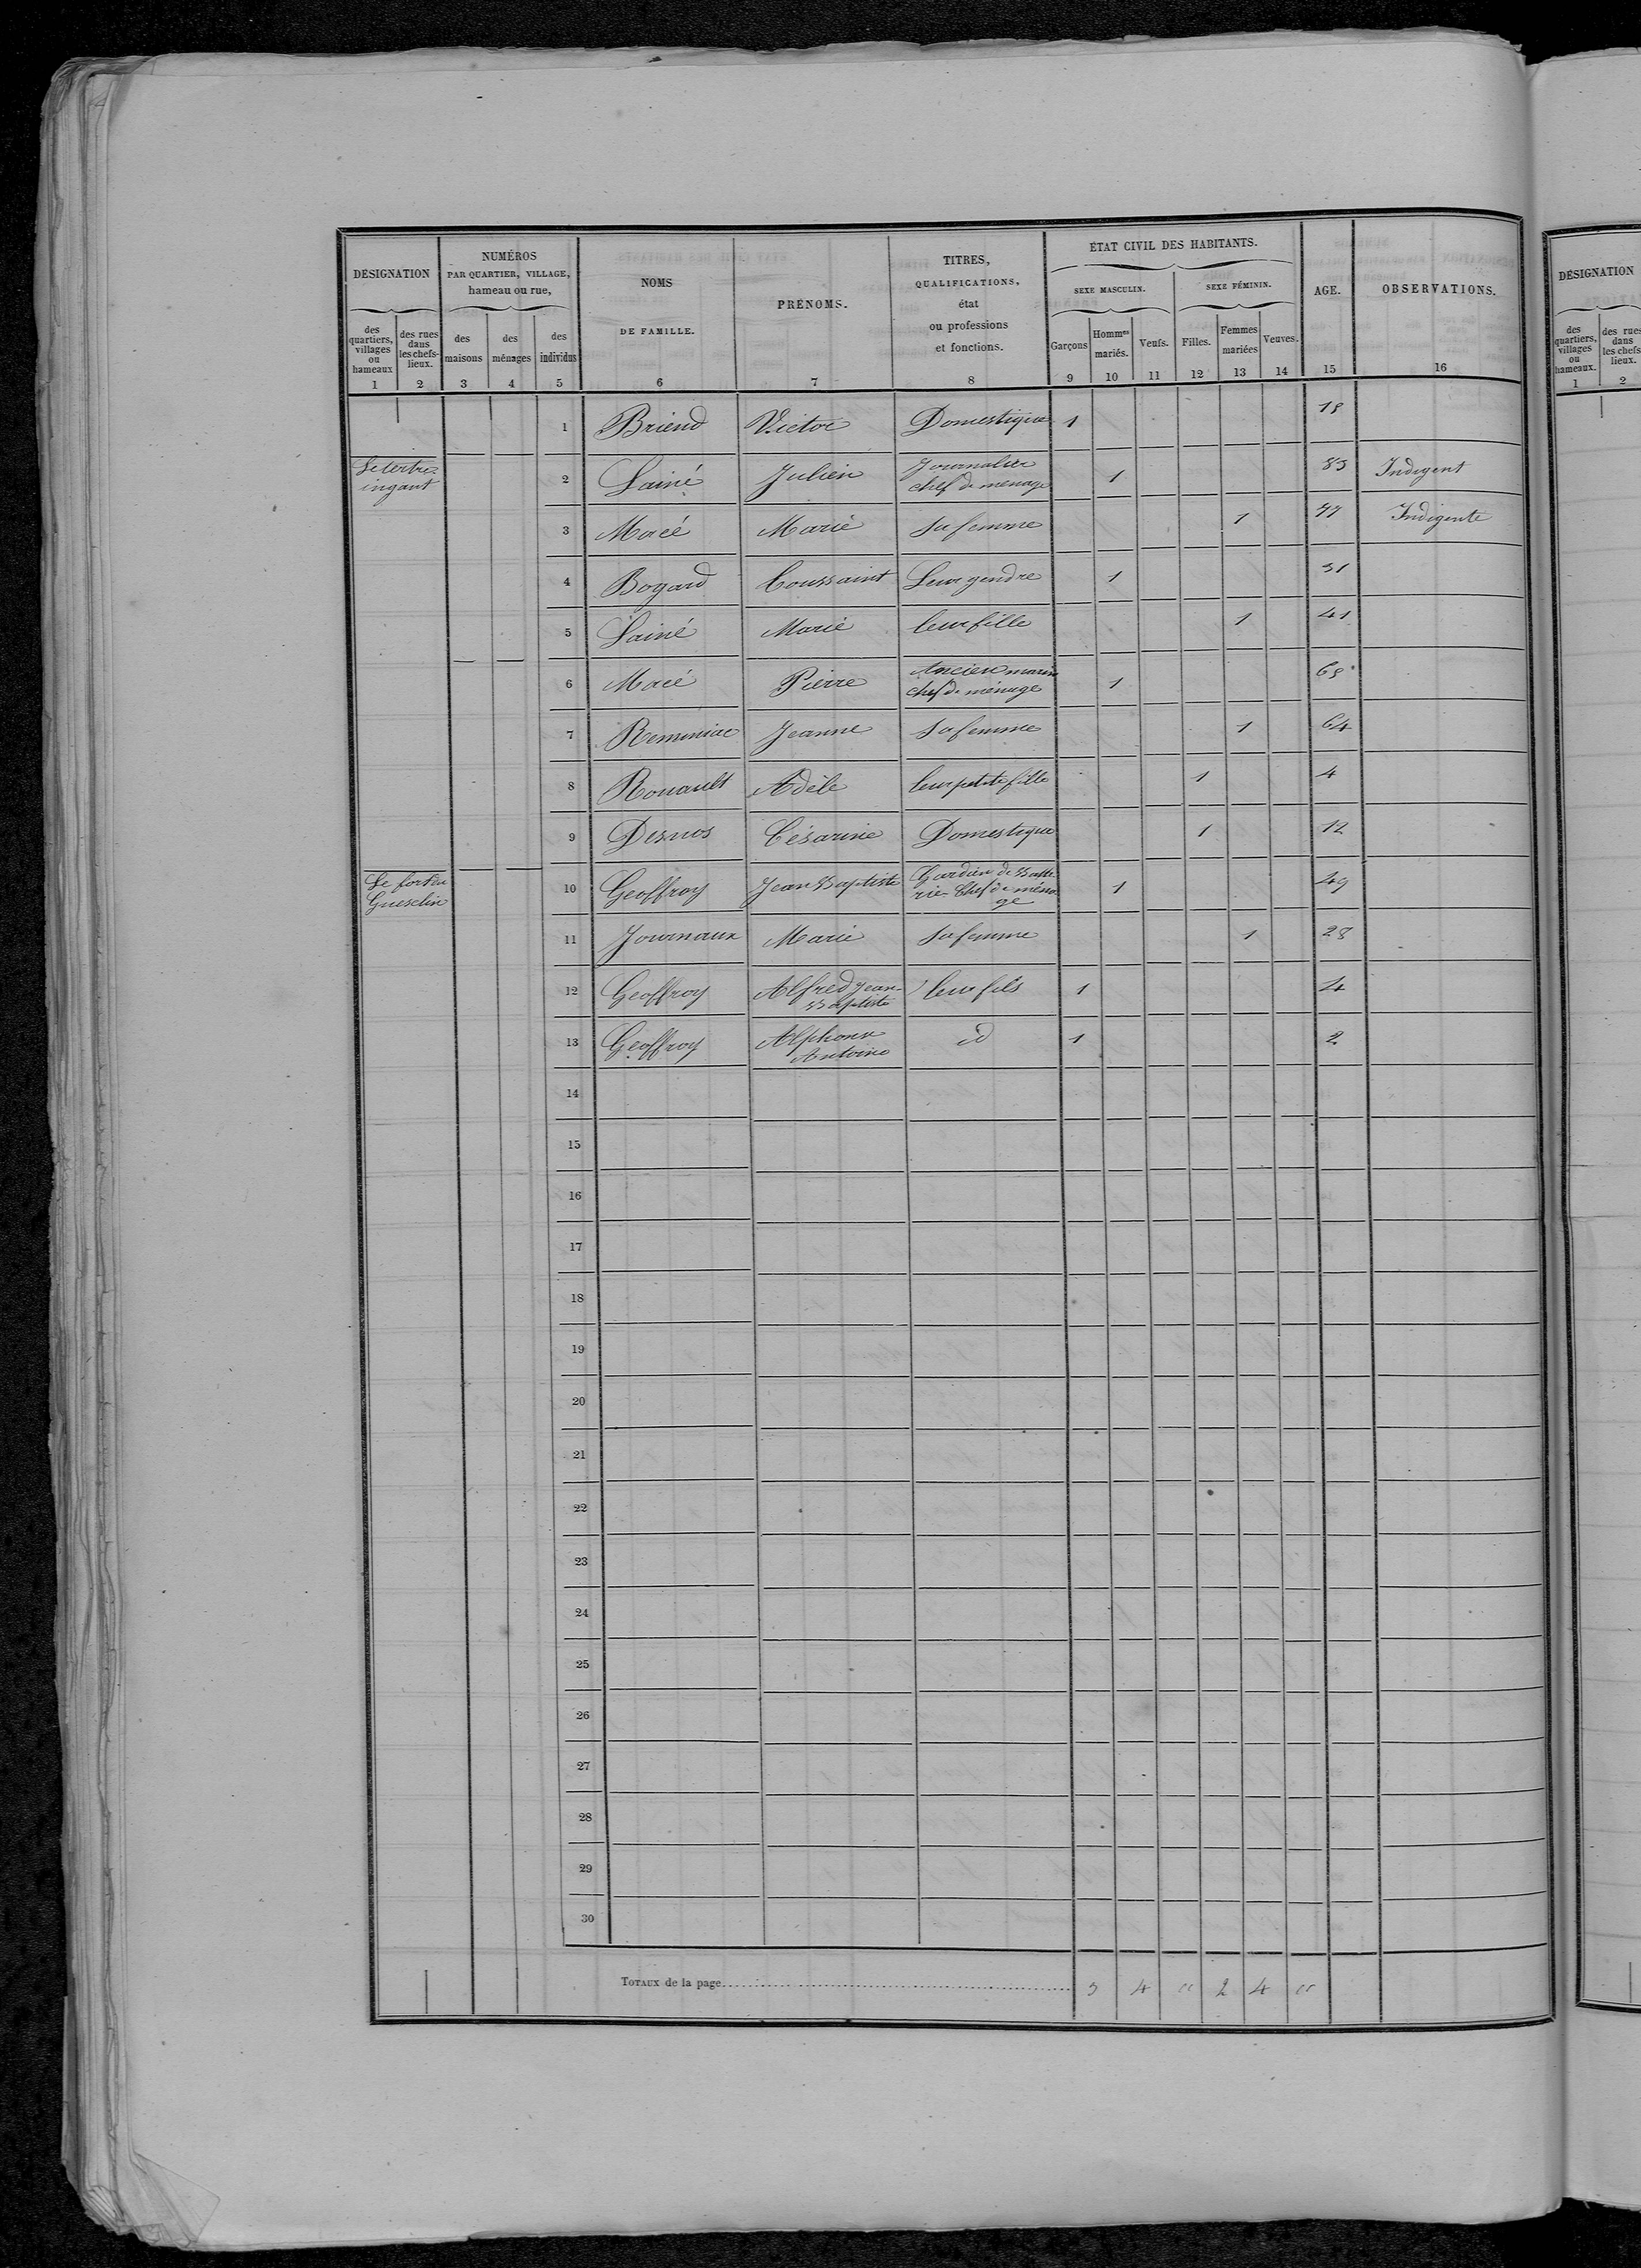 DÉSIGNATION
NUMÉROS
PAR QUARTIER, VILLAGE,
hameau ou rue,
NOMS
DE FAMILLE.
PRÉNOMS.
TITRES,
QUALIFICATIONS,
état
ou professions
et fonctions.
ÉTAT CIVIL DES HABITANTS.
SEXE MASCULIN.
SEXE FÉMININ.
AGE.
OBSERVATIONS.
des
quartiers,
villages
ou
hameaux
des rues
dans
les chefs-
lieux.
des
maisons
des
ménages
des
individus
Garçons
Hommes
mariés.
Veufs.
Filles.
Femmes
mariées
Veuves.
1 2 3 4 5 6 7 8 9 10 11 12 13 14 15 16
1 Briend Victor Domestique 1 18
Le tertre
ingant
2 Lainé Julien Journalier
chef de ménage 1 83 Indigent
3 Macé Marie Sa femme 1 77 Indigente
4 Bogard Toussaint Leur gendre 1 51
5 Lainé Marie leur fille 1 41
6 Macé Pierre Ancien marin
chef de ménage 1 68
7 Reminiac Jeanne Sa femme 1 64
8 Rouault Adèle leur petite fille 1 4
9 Desnos Césarine Domestique 1 12
Le fort du
Guesclin
10 Geoffroy Jean Baptiste Gardien de Batte-
rie Chef de ména-
ge 1 49
11 Journaux Marie Sa femme 1 28
12 Geoffroy Alfred Jean-
Baptiste leur fils 1 4
13 Geoffroy Alphonse
Antoine id 1 2
14
15
16
17
18
19
20
21
22
23
24
25
26
27
28
29
30
TOTAUX de la page 3 4 " 2 4 "
DÉSIGNATION
des
quartiers,
villages
ou
hameaux.
des rues
dans
les chefs
lieux.
1 2